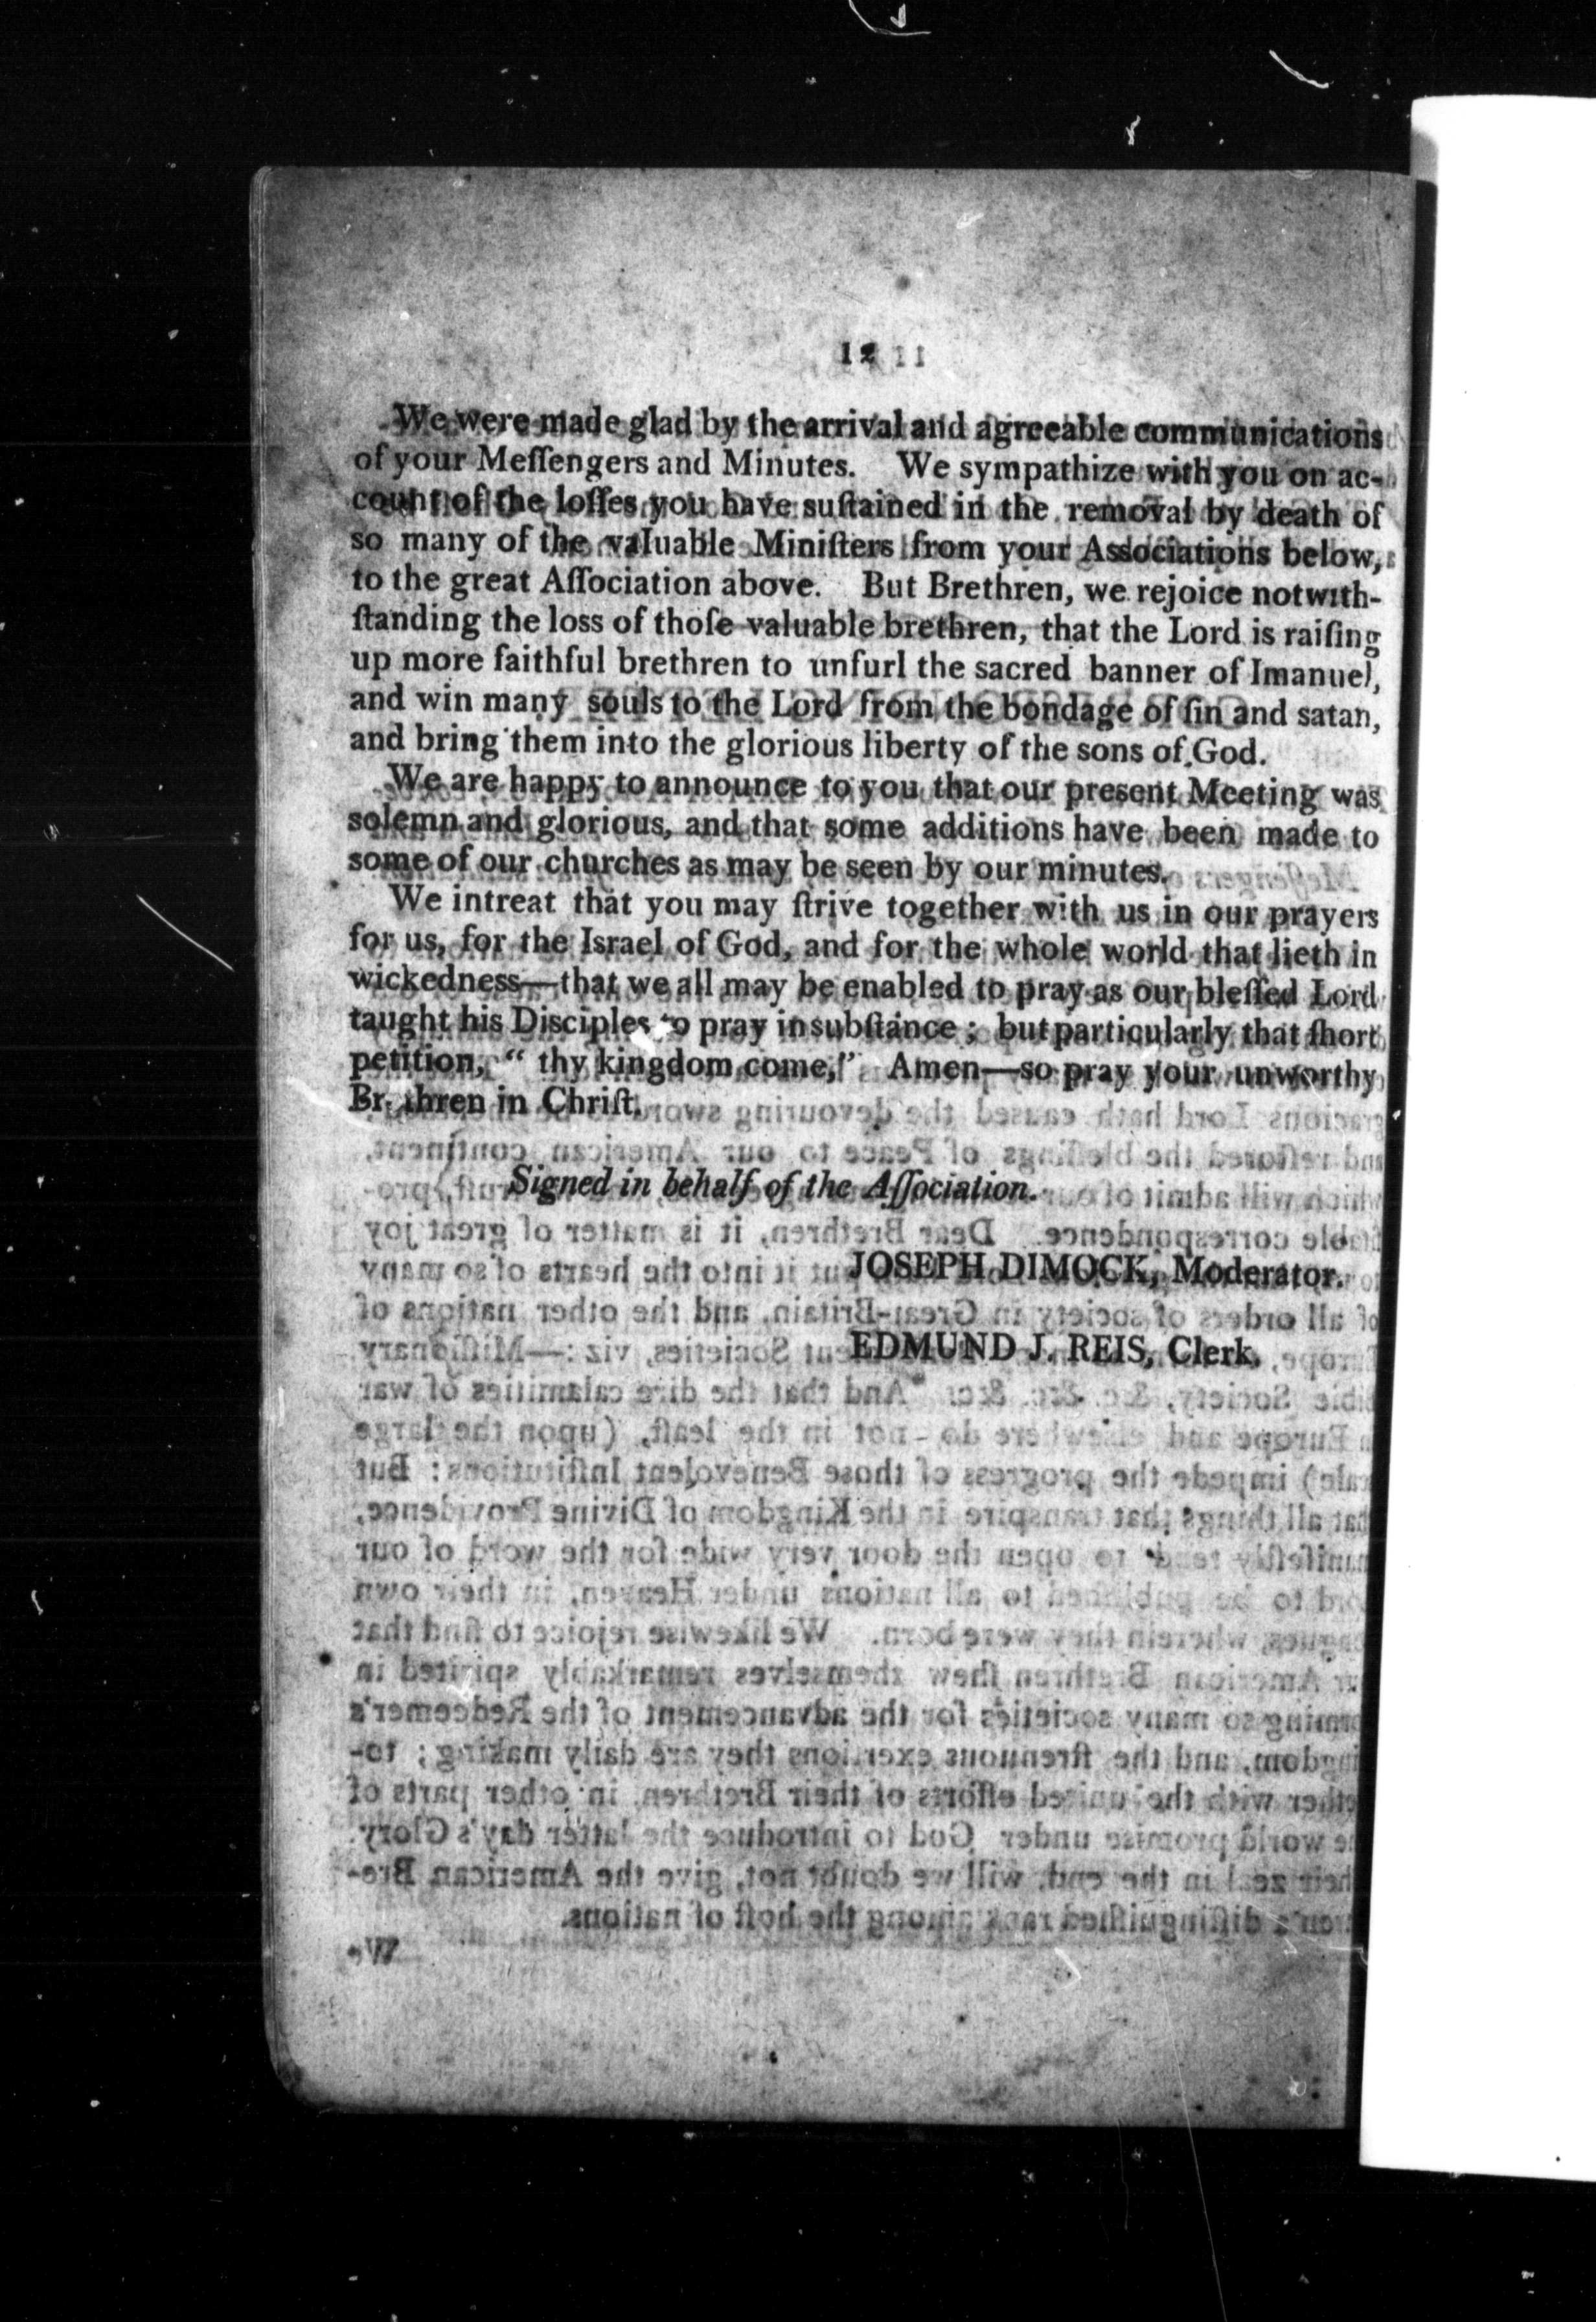 12
We were made glad by the arrival and agreeable communications
of your Meſſengers and Minutes. We sympathize with you on ac-
count of the loſſes you have suſtained in the removal by death of
so many of the valuable Miniſters from your Associations below,
to the great Aſſociation above. But Brethren, we rejoice notwith-
ſtanding the loss of thoſe valuable brethren, that the Lord is raiſing
up more faithful brethren to unfurl the sacred banner of Imanuel,
and win many souls to the Lord from the bondage of ſin and satan,
and bring them into the glorious liberty of the sons of God.
We are happy to announce to you that our present Meeting was
solemn and glorious, and that some additions have been made to
some of our churches as may be seen by our minutes.
We intreat that you may ſtrive together with us in our prayers
for us, for the Israel of God, and for the whole world that lieth in
wickedness—that we all may be enabled to pray as our bleſſed Lord
taught his Disciples to pray in subſtance ; but particularly that ſhort
petition, “ thy kingdom come,” Amen—so pray your unworthy
Brethren in Chriſt.
Signed in behalf of the Aſſociation.
JOSEPH DIMOCK, Moderator.
EDMUND J. REIS, Clerk.